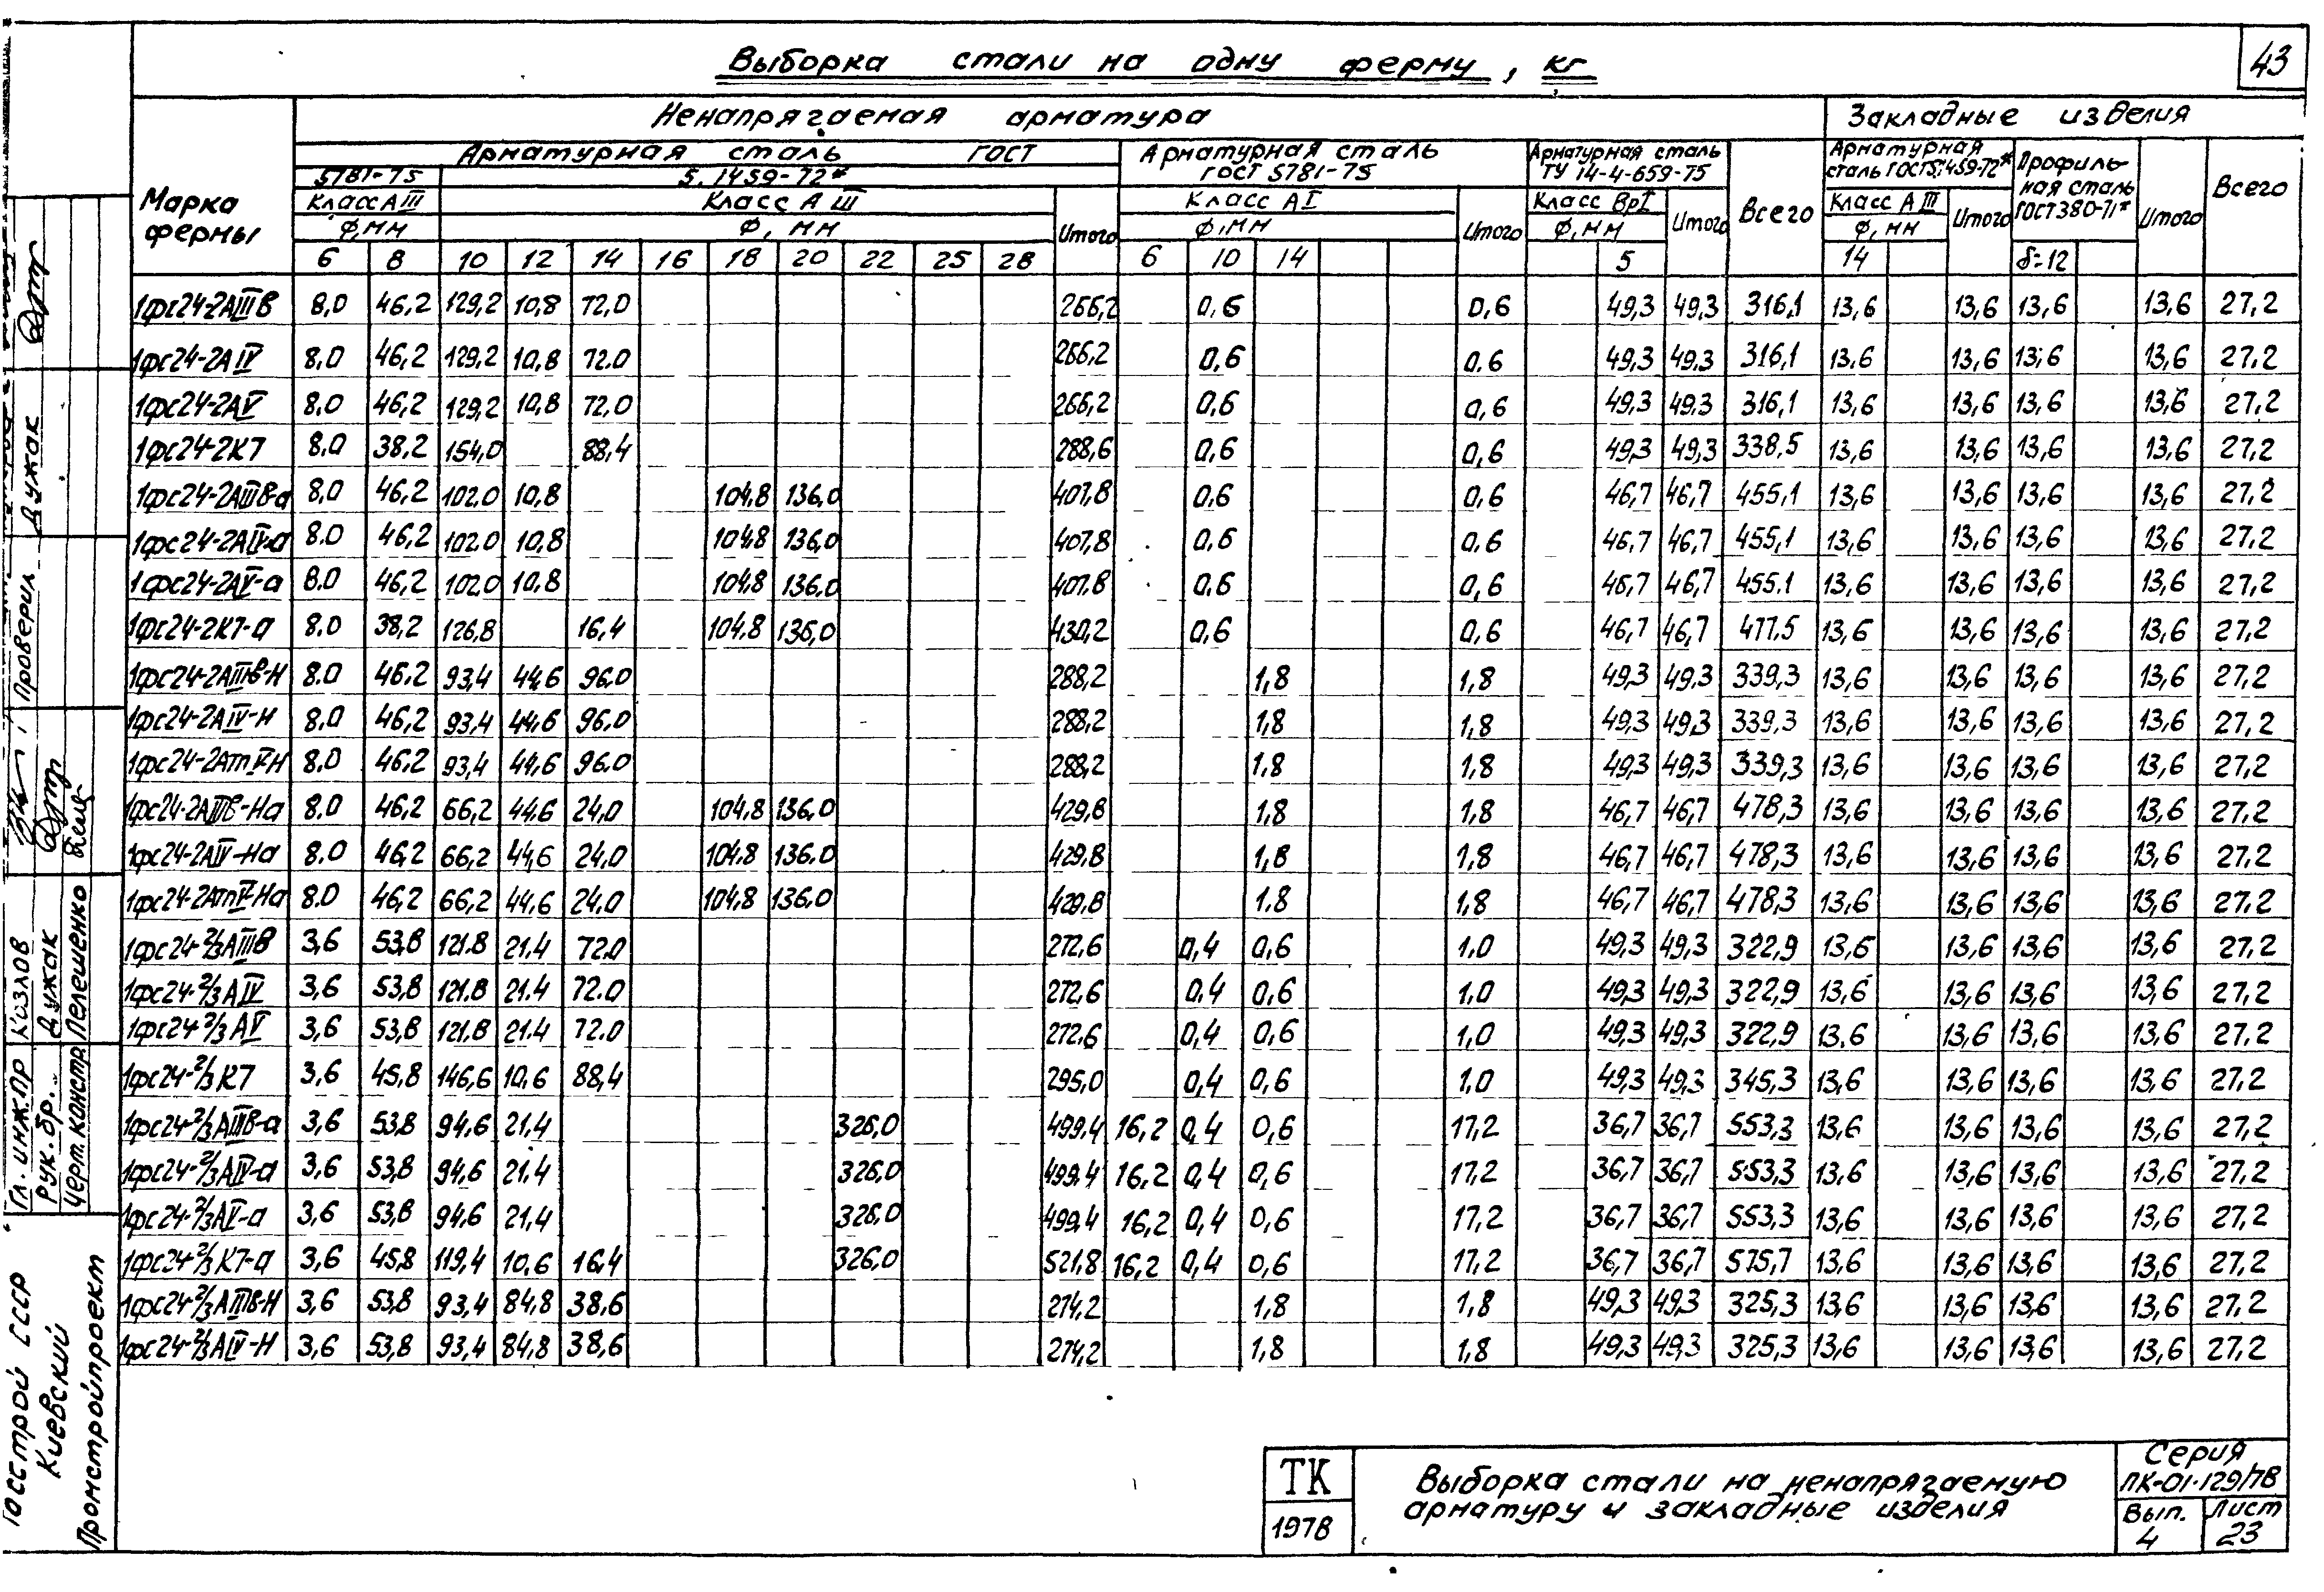 43
Выборка стали на одну ферму, кг
Марка фермы
Ненапрягаемая арматура
Закладные изделия
Арматурная сталь ГОСТ
Арматурная сталь ГОСТ 5781-75
Арматурная сталь ТУ 14-4-659-75
Всего
Арматурная сталь ГОСТ5.1459-72*
Профильная сталь ГОСТ380-71*
Итого
Всего
5781-75
5.1459-72*
Класс А III
Класс А III
Итого
Класс А I
Итого
Класс Вр I
Итого
Класс А III
Итого
ф,мм
ф, мм
ф,мм
ф,мм
ф, мм
6 8 10 12 14 16 18 20 22 25 28 6 10 14 5 14 δ=12
1фс24-2АIIIв 8,0 46,2 129,2 10,8 72,0 266,2 0,6 0,6 49,3 49,3 316,1 13,6 13,6 13,6 13,6 27,2
1фс24-2АIV 8,0 46,2 129,2 10,8 72.0 266,2 0,6 0.6 49,3 49,3 316,1 13,6 13,6 13,6 13,6 27,2
1фс24-2АV 8.0 46,2 129,2 10,8 72,0 266,2 0,6 0,6 49,3 49,3 316,1 13,6 13,6 13,6 13,6 27,2
1фс24-2К7 8,0 38,2 154,0 88,4 288,6 0,6 0,6 49,3 49,3 338,5 13,6 13,6 13,6 13,6 27,2
1фс24-2АIIIв-а 8,0 46,2 102.0 10,8 104,8 136,0 407,8 0,6 0,6 46,7 46,7 455,1 13,6 13,6 13,6 13,6 27,2
1фс24-2АIV-а 8.0 46,2 102.0 10,8 104,8 136,0 407,8 0,6 0,6 46,7 46,7 455,1 13,6 13,6 13,6 13,6 27,2
1фс24-2АV-а 8.0 46,2 102,0 10,8 104,8 136,0 407,8 0.6 0,6 46,7 46,7 455.1 13,6 13,6 13,6 13,6 27,2
1фс24-2К7-а 8.0 38,2 126,8 16,4 104,8 136,0 430,2 0,6 0,6 46,7 46,7 477.5 13,6 13,6 13,6 13,6 27,2
1фс24-2АIIIв-Н 8.0 46,2 93,4 44,6 96,0 288,2 1,8 1,8 49,3 49,3 339,3 13,6 13,6 13,6 13,6 27,2
1фс24-2АIV-Н 8,0 46,2 93,4 44,6 96,0 288,2 1,8 1,8 49,3 49,3 339,3 13,6 13,6 13,6 13,6 27,2
1фс24-2АтV-Н 8,0 46,2 93,4 44,6 96,0 288,2 1.8 1,8 49,3 49,3 339,3 13,6 13,6 13,6 13,6 27,2
1фс24-2АIIIв-На 8,0 46,2 66,2 44,6 24,0 104,8 136,0 429,8 1,8 1,8 46,7 46,7 478,3 13,6 13,6 13,6 13,6 27,2
1фс24-2АIV-На 8.0 46,2 66,2 44,6 24,0 104,8 136.0 429,8 1,8 1,8 46,7 46,7 478,3 13,6 13,6 13,6 13,6 27,2
1фс24-2АтV-На 8.0 46,2 66,2 44,6 24,0 104,8 136,0 429,8 1.8 1,8 46,7 46,7 478,3 13,6 13,6 13,6 13,6 27,2
1фс24-2/3АIIIв 3,6 53,8 121.8 21.4 72.0 272,6 0,4 0,6 1,0 49,3 49,3 322,9 13,6 13,6 13,6 13,6 27,2
1фс24-2/3АIV 3,6 53,8 121.8 21.4 72.0 272,6 0,4 0,6 1,0 49,3 49,3 322,9 13,6 13,6 13,6 13,6 27,2
1фс24-2/3АV 3,6 53,8 121.8 21.4 72.0 272,6 0,4 0,6 1,0 49,3 49,3 322,9 13,6 13,6 13,6 13,6 27,2
1фс24-2/3К7 3,6 45,8 146,6 10,6 88,4 295,0 0,4 0,6 1,0 49,3 49,3 345,3 13,6 13,6 13,6 13,6 27,2
1фс24-2/3АIIIв-а 3,6 53,8 94,6 21,4 326,0 499,4 16,2 0,4 0,6 17,2 36,7 36,7 553,3 13,6 13,6 13,6 13,6 27,2
1фс24-2/3АIV-а 3,6 53,8 94,6 21,4 326,0 499,4 16,2 0,4 0,6 17,2 36,7 36,7 553,3 13,6 13,6 13,6 13,6 27,2
1фс24-2/3АV-а 3,6 53,8 94,6 21,4 326,0 499,4 16,2 0,4 0,6 17,2 36,7 36,7 553,3 13,6 13,6 13,6 13,6 27,2
1фс24-2/3К7-а 3,6 45,8 119,4 10,6 16,4 326,0 521,8 16,2 0,4 0,6 17,2 36,7 36,7 575,7 13,6 13,6 13,6 13,6 27,2
1фс24-2/3АIIIв-Н 3,6 53,8 93,4 84,8 38,6 274,2 1,8 1,8 49,3 49,3 325,3 13,6 13,6 13,6 13,6 27,2
1фс24-2/3АIV-Н 3,6 53,8 93,4 84,8 38,6 274,2 1,8 1,8 49,3 49,3 325,3 13,6 13,6 13,6 13,6 27,2
Госстрой СССР
Киевский
Промстройпроект
Гл. инж.пр Козлов
Рук. бр. Дужак
Черт. констр. Пелешенко
Проверил Дужак
ТК
1978
Выборка стали на ненапрягаемую
арматуру и закладные изделия
Серия
ПК-01-129/78
Вып. 4
Лист 23